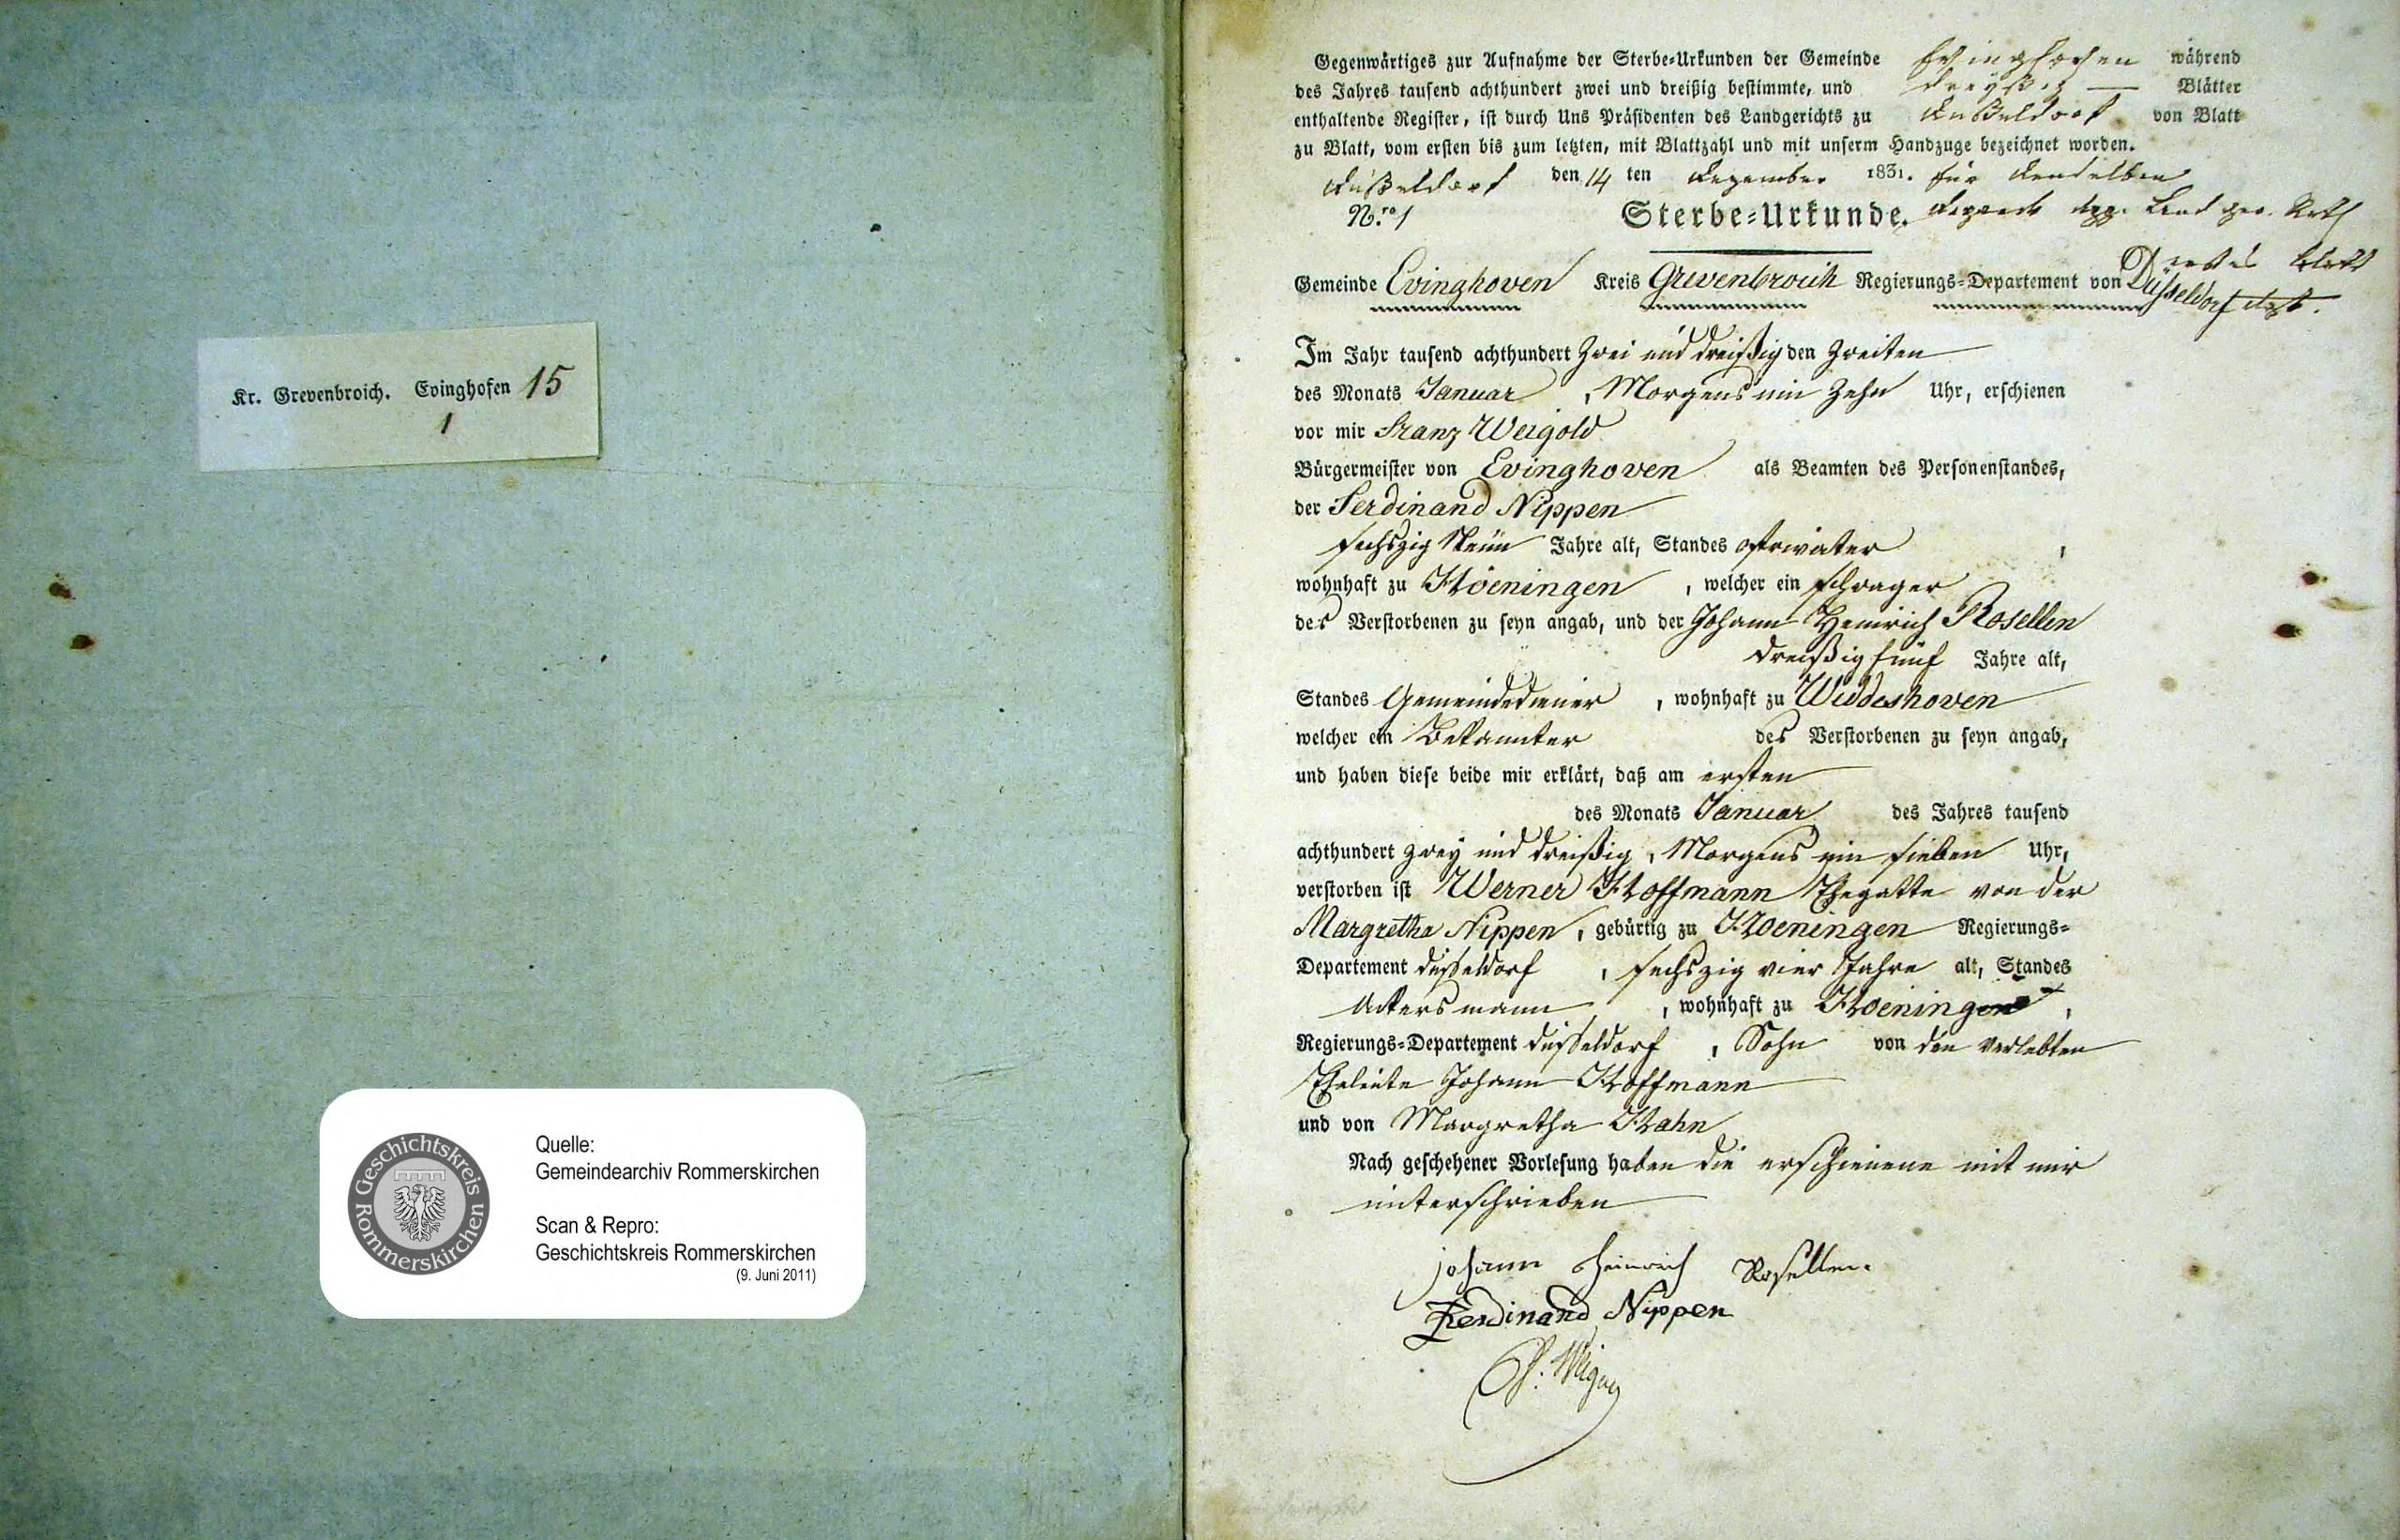 Kr. Grevenbroich. Evinghofen 15
1
Geschichtskreis Rommerskirchen
Quelle:
Gemeindearchiv Rommerskirchen
Scan & Repro:
Geschichtskreis Rommerskirchen
(9. Juni 2011)
Gegenwärtiges zur Aufnahme der Sterbe-Urkunden der Gemeinde Evinghoven während
des Jahres tausend achthundert zwei und dreißig bestimmte, und dreyßig — Blätter
enthaltende Register, ist durch Uns Präsidenten des Landgerichts zu Düßeldorf von Blatt
zu Blatt, vom ersten bis zum letzten, mit Blattzahl und mit unserm Handzuge bezeichnet worden.
Düßeldorf den 14 ten Dezember 1831. für denselben
N.ro 1 Sterbe-Urkunde.
Erstes Blatt
Gemeinde Evinghoven Kreis Grevenbroich Regierungs-Departement von Düsseldorf
Im Jahr tausend achthundert zwei und dreißig den zweiten
des Monats Januar, Morgens um zehn Uhr, erschienen
vor mir Franz Weigold
Bürgermeister von Evinghoven als Beamten des Personenstandes,
der Ferdinand Nippen
sechszig Neun Jahre alt, Standes
wohnhaft zu Hoeningen, welcher ein schwager
des Verstorbenen zu seyn angab, und der Johann Heinrich Rosellen
dreißig fünf Jahre alt,
Standes Gemeindediener, wohnhaft zu Widdeshoven
welcher ein Bekannter des Verstorbenen zu seyn angab,
und haben diese beide mir erklärt, daß am ersten
des Monats Januar des Jahres tausend
achthundert zwey und dreißig, Morgens um sieben Uhr,
verstorben ist Werner Hoffmann Ehegatte von der
Margretha Nippen, gebürtig zu Hoeningen Regierungs-
Departement düsseldorf, sechszig vier Jahre alt, Standes
Ackersmann, wohnhaft zu Hoeningen,
Regierungs-Departement düsseldorf, Sohn von den verlebten
Eheleute Johann Hoffmann
und von Margretha Hahn
Nach geschehener Vorlesung haben die erschienene mit mir
unterschrieben
Johann Heinrich Rosellen.
Ferdinand Nippen